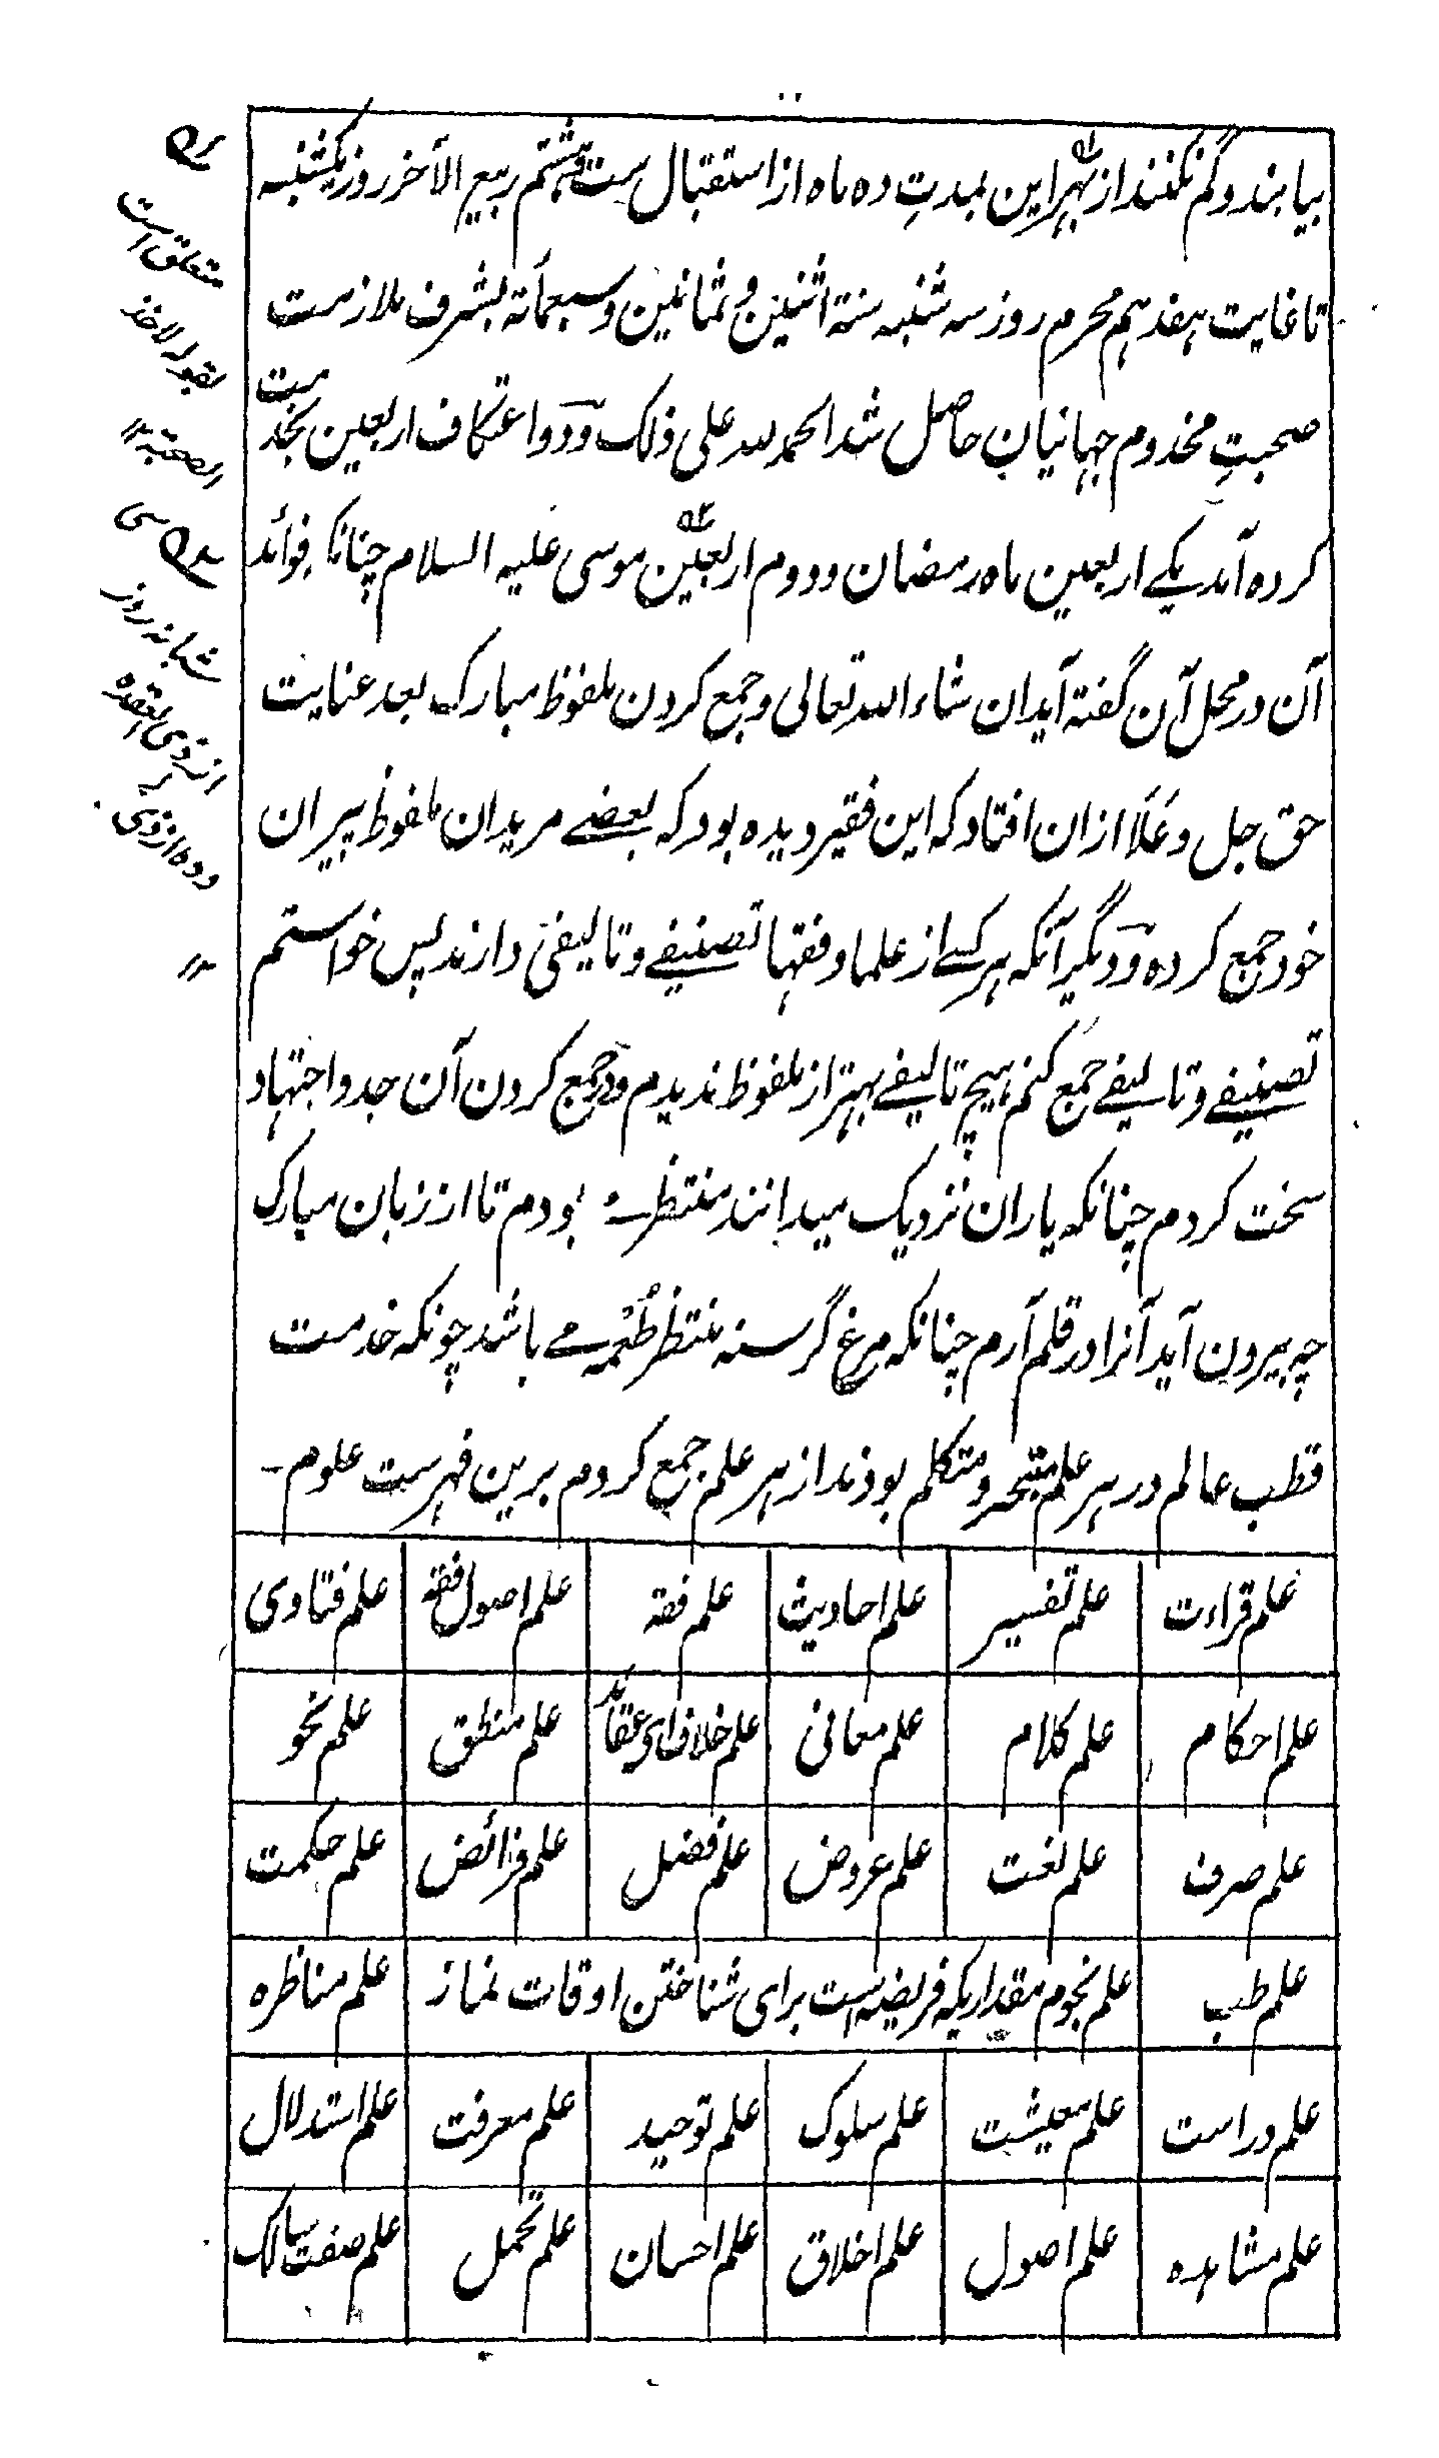 بیابند و گم نکنند از بهر این بمدتِ ده ماه از استقبال بست و هشتم ربیع الآخر روز یکشنبه
تا غایت هفدهم محرم روز سه شنبه سنة اثنین و ثمانین و سبعمأته بشرف ملازمت
صحبتِ مخدوم جهانیان حاصل شد الحمد لله علی ذلک و دو اعتکاف اربعین بخدمت
کرده آمد یکے اربعین ماه رمضان و دوم اربعین موسی علیه السلام چنانکه فوائد
آن در محل آن گفته آید ان شاء الله تعالی و جمع کردن ملفوظ مبارک بعد عنایت
حق جل و عَلَا ازان افتاد که این فقیر دیده بود که بعضے مریدان ملفوظ پیران
خود جمع کرده و دیگر آنکه هر کسے از علما و فقها تصنیفے و تالیفی دارند پس خواستم
تصنیفے و تالیفے جمع کنم هیچ تالیفے بهتر از ملفوظ ندیدم و در جمع کردن آن جد و اجتهاد
سخت کردم چنانکه یاران نزدیک میدانند منتظر بودم تا از زبان مبارک
چه بیرون آید آنرا در قلم آرم چنانکه مرغ گرسنه منتظر طُعْمه مے باشد چونکه خدمت
قطب عالم در هر علم متبحر و متکلم بودند از هر علم جمع کردم برین فهرست علوم ـ
علم قراءت علم تفسیر علم احادیث علم فقه علم اصول فقه علم فتاوی
علم احکام علم کلام علم معانی علم خلاف ای عقائد علم منطق علم نحو
علم صرف علم لغت علم عروض علم فضل علم فرائض علم حکمت
علم طب علم نجوم مقداریکه فریضه است برای شناختن اوقات نماز علم مناظره
علم دراست علم معیشت علم سلوک علم توحید علم معرفت علم استدلال
علم مشاهده علم اصول علم اخلاق علم احسان علم تحمل علم صفت سالک
متعلق است
بقوله لاخذ
الصحبة ۱۲
سی
شبانه روز
از ذی القعده
و ده از ذی
۱۲